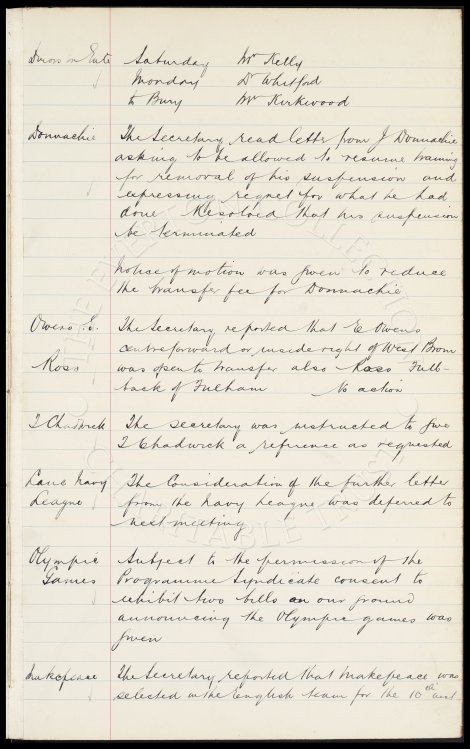 Saturday Mr Kelly
Monday Dr Whitford
to Bury Mr Kirkwood
Donnachie The Secretary read letter from J Donnachie
asking to be allowed to resume training
for removal of his suspension and
expressing regret for what he had
done Resolved that his suspension
be terminated
Notice of motion was given to reduce
the transfer fee for Donnachie
Owens E. The Secretary reported that E Owens
centreforward or inside right of West Brom
Ross was open to transfer also Ross Full-
back of Fulham No action
T Chadwick The secretary was instructed to give
T Chadwick a reference as requested
Lanc Navy The Consideration of the further letter
League from the Navy League was deferred to
next meeting
Olympic Subject to the permission of the
Games Programme Syndicate consent to
exhibit two bills on our ground
announcing the Olympic games was
given
Makepeace The Secretary reported that Makepeace was
selected in the English team for the 10th inst
THE EVERTON COLLECTION
CHARITABLE TRUST